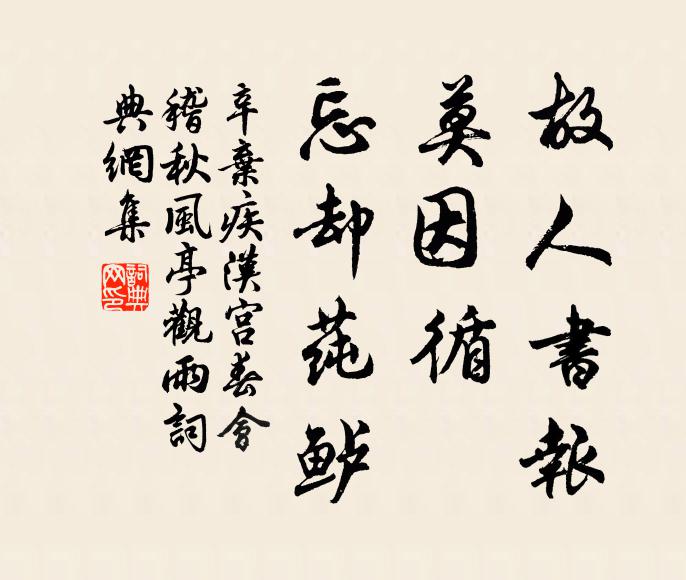 故人書報
莫因循
忘却莼鲈
辛棄疾漢宮春會
稽秋風亭觀雨詞
典網集
詞典
网印